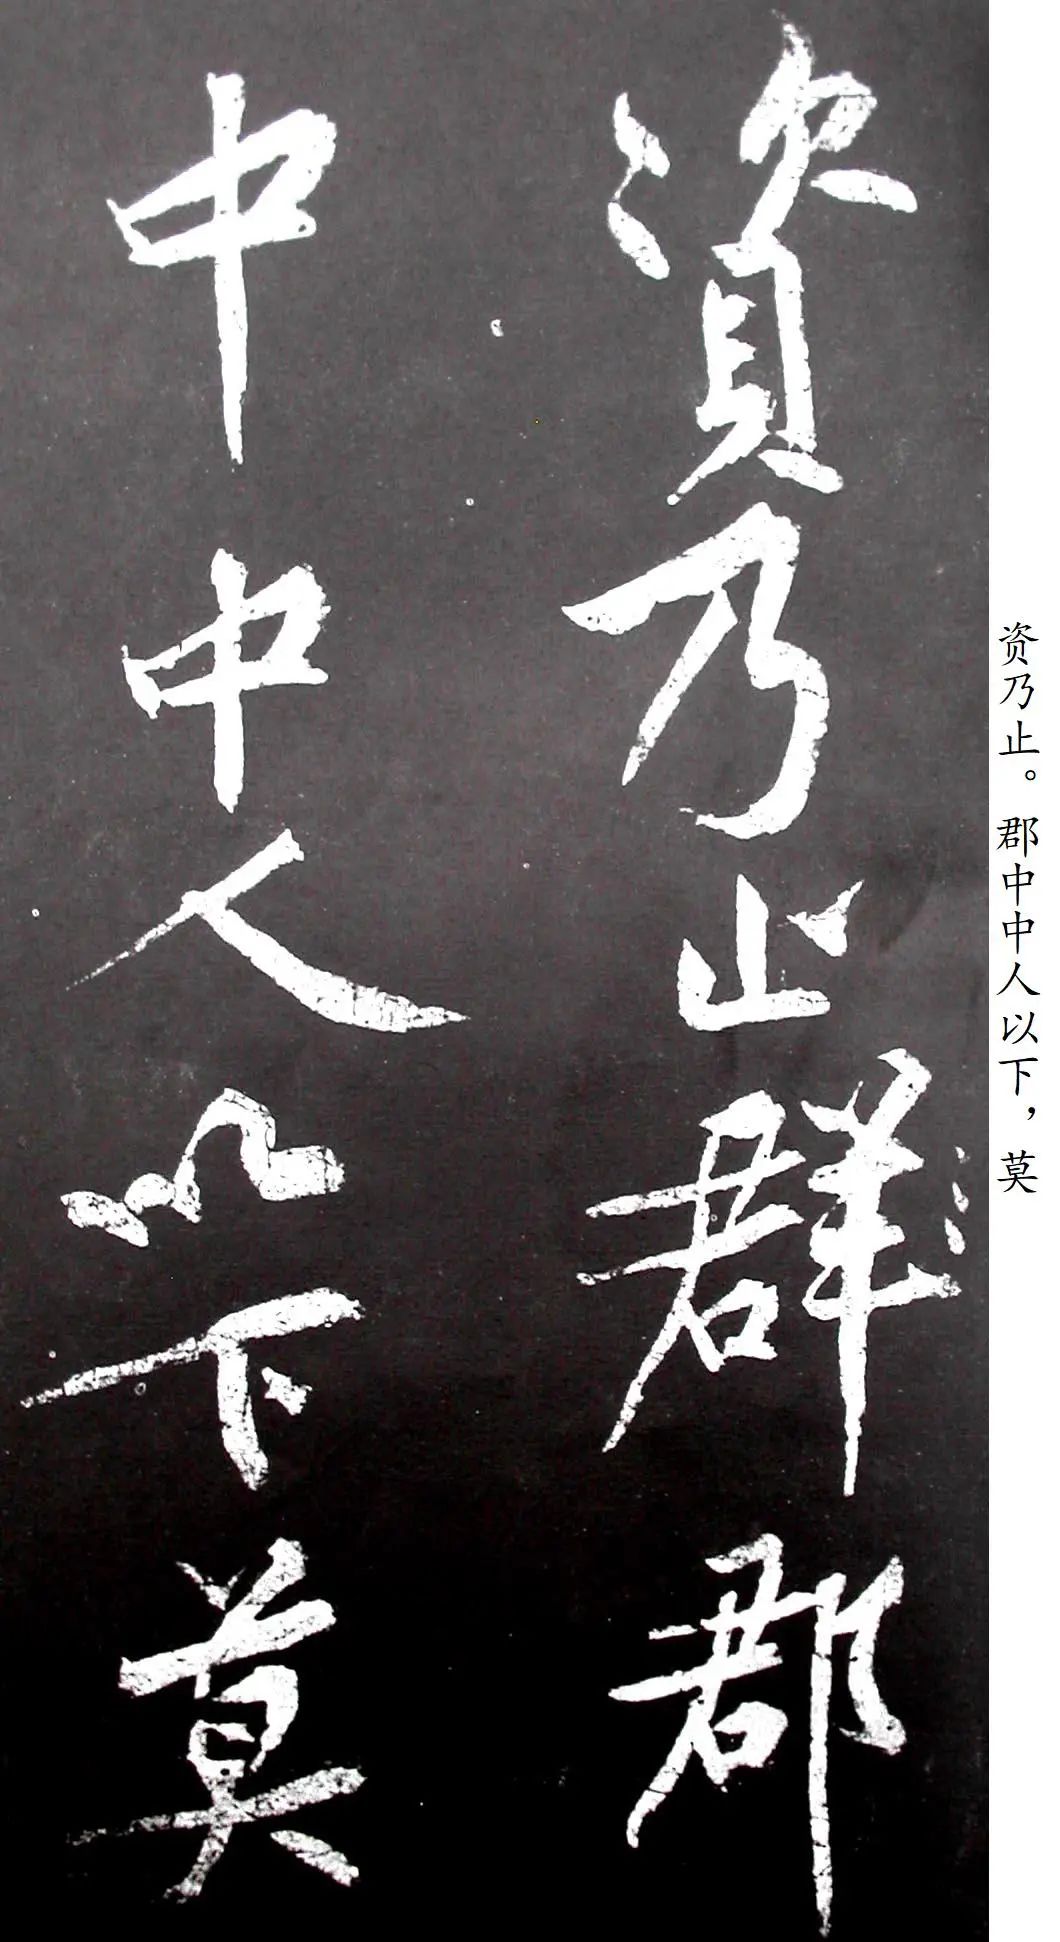 资乃止。郡中中人以下，莫
資乃止群郡
中中人以下莫